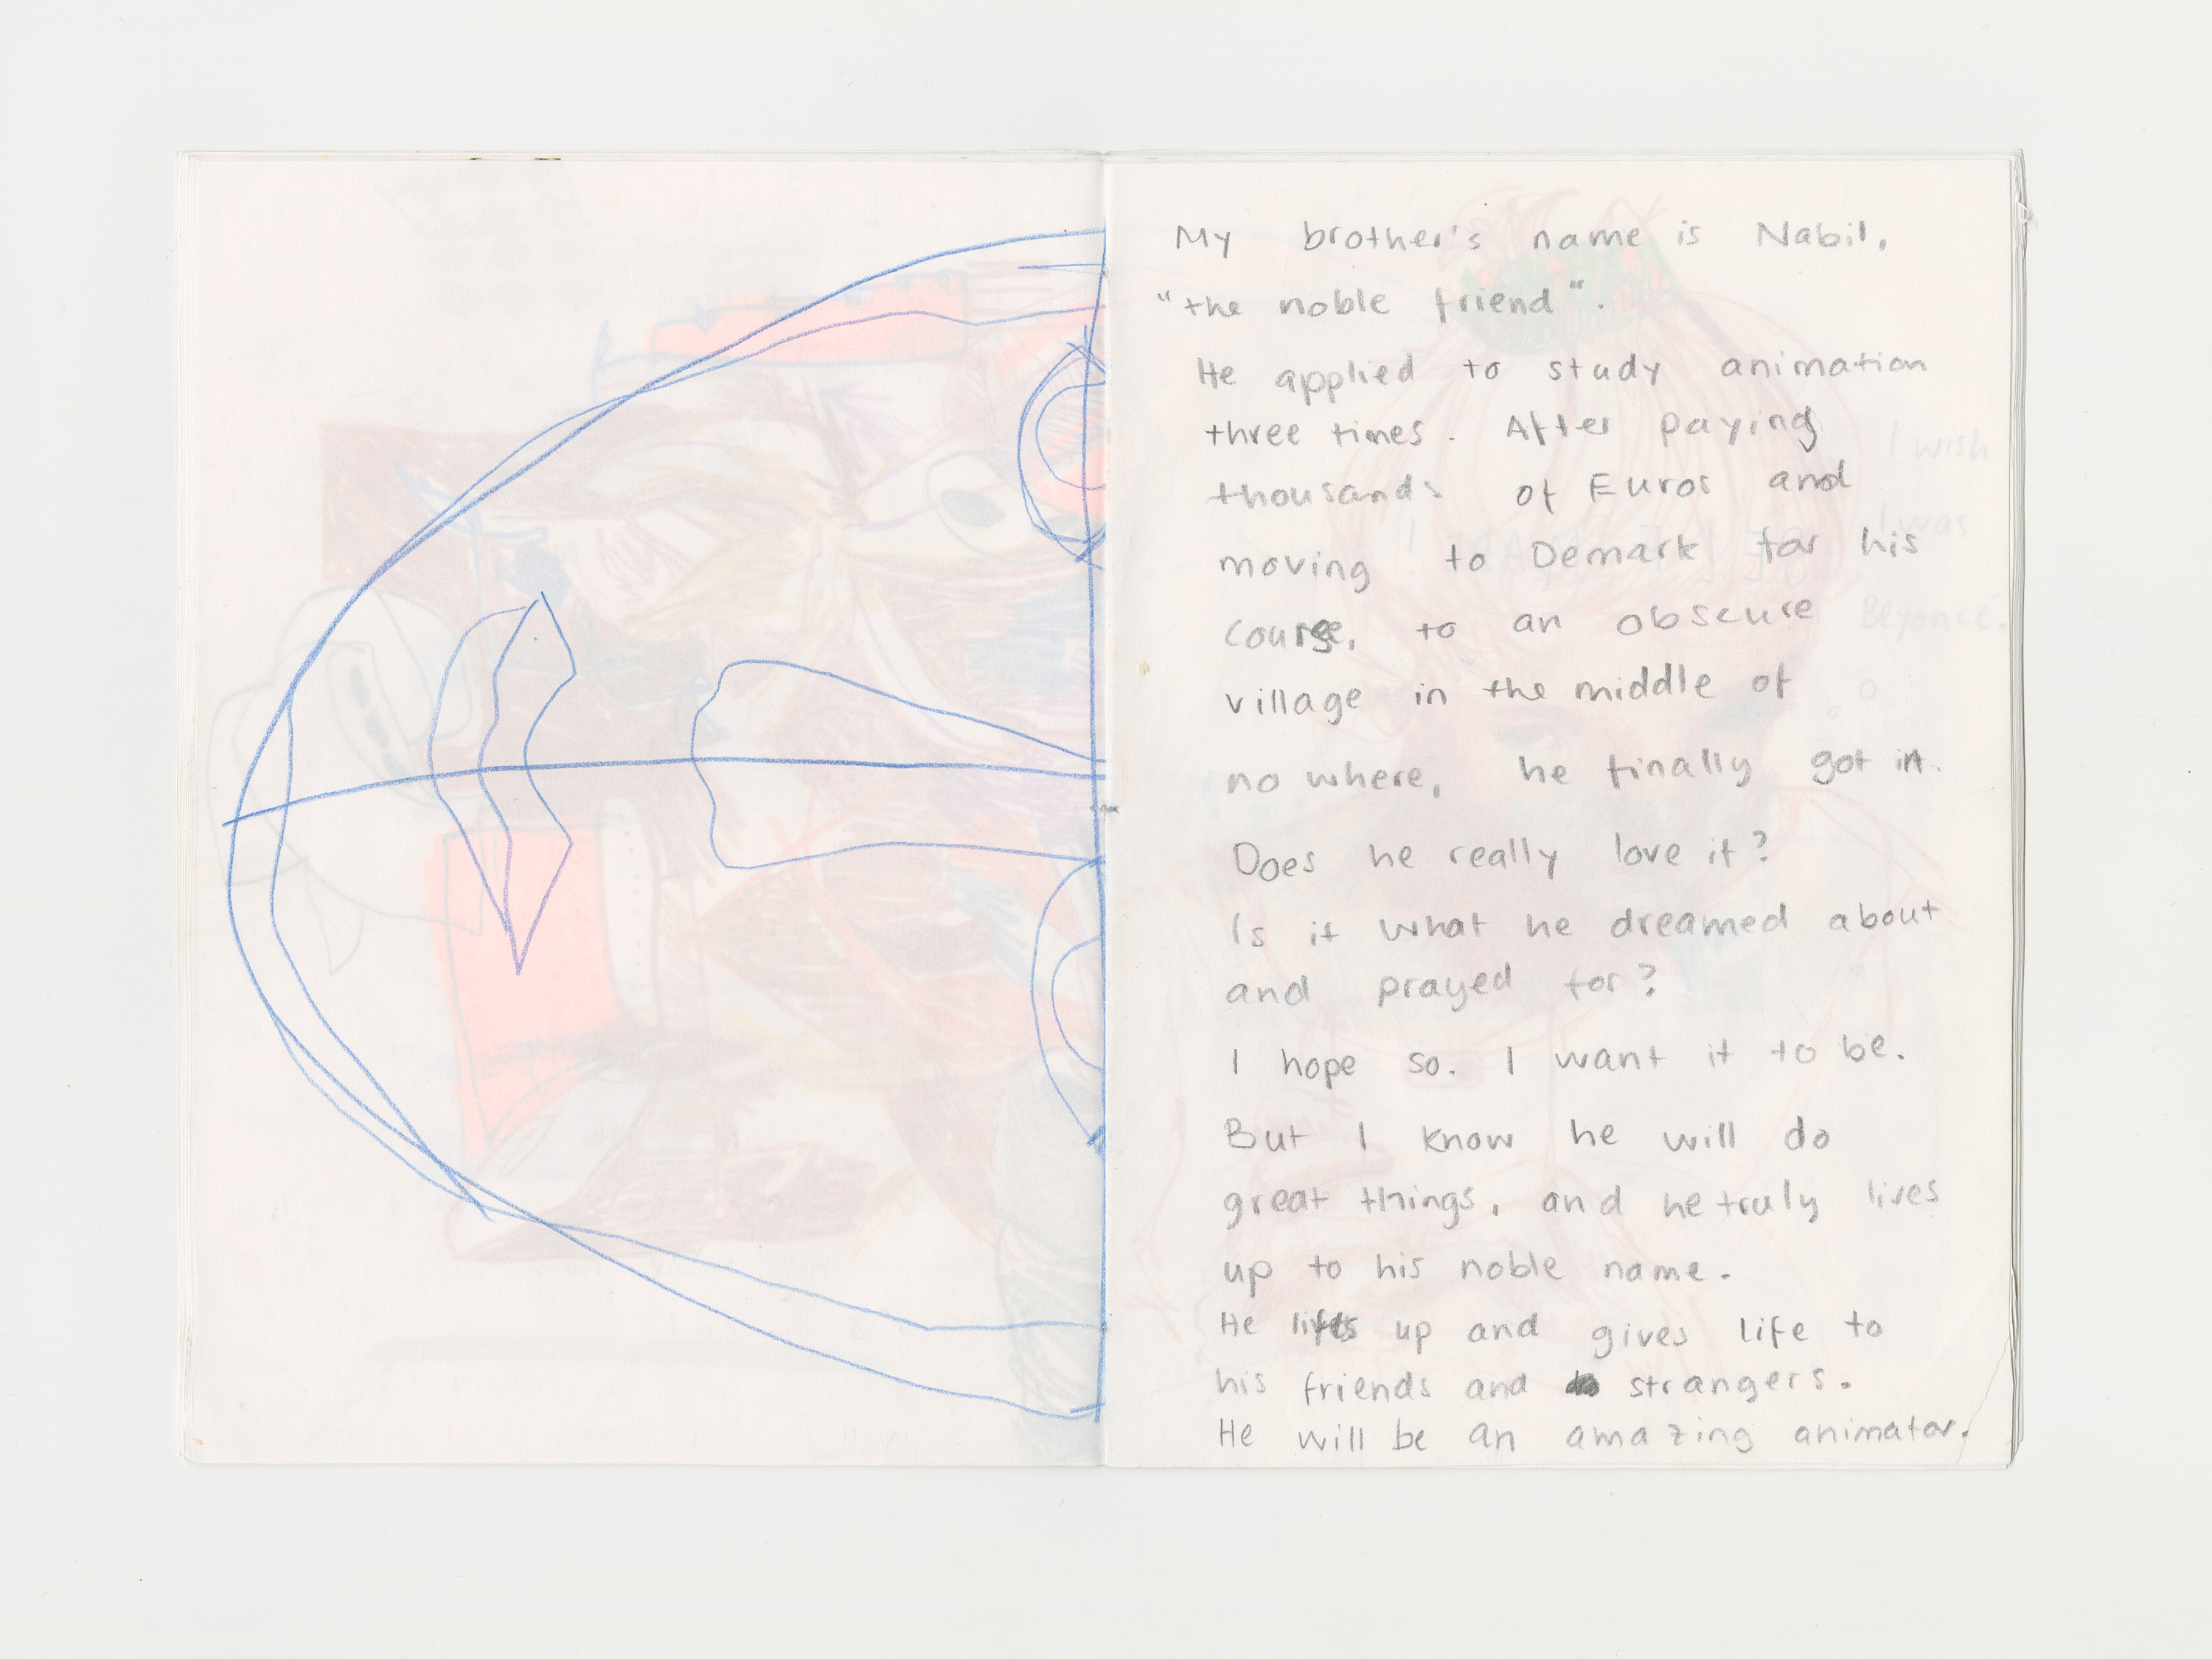 My brother's name is Nabil,
"the noble friend".
He applied to study animation
three times. After paying
thousands of Euros and
moving to Demark for his
course, to an obscure
village in the middle of
no where, he finally got in.
Does he really love it?
Is it what he dreamed about
and prayed for?
I hope so. I want it to be.
But I know he will do
great things, and he truly lives
up to his noble name.
He lifts up and gives life to
his friends and strangers.
He will be an amazing animator.
I wish
I was
Beyoncé.